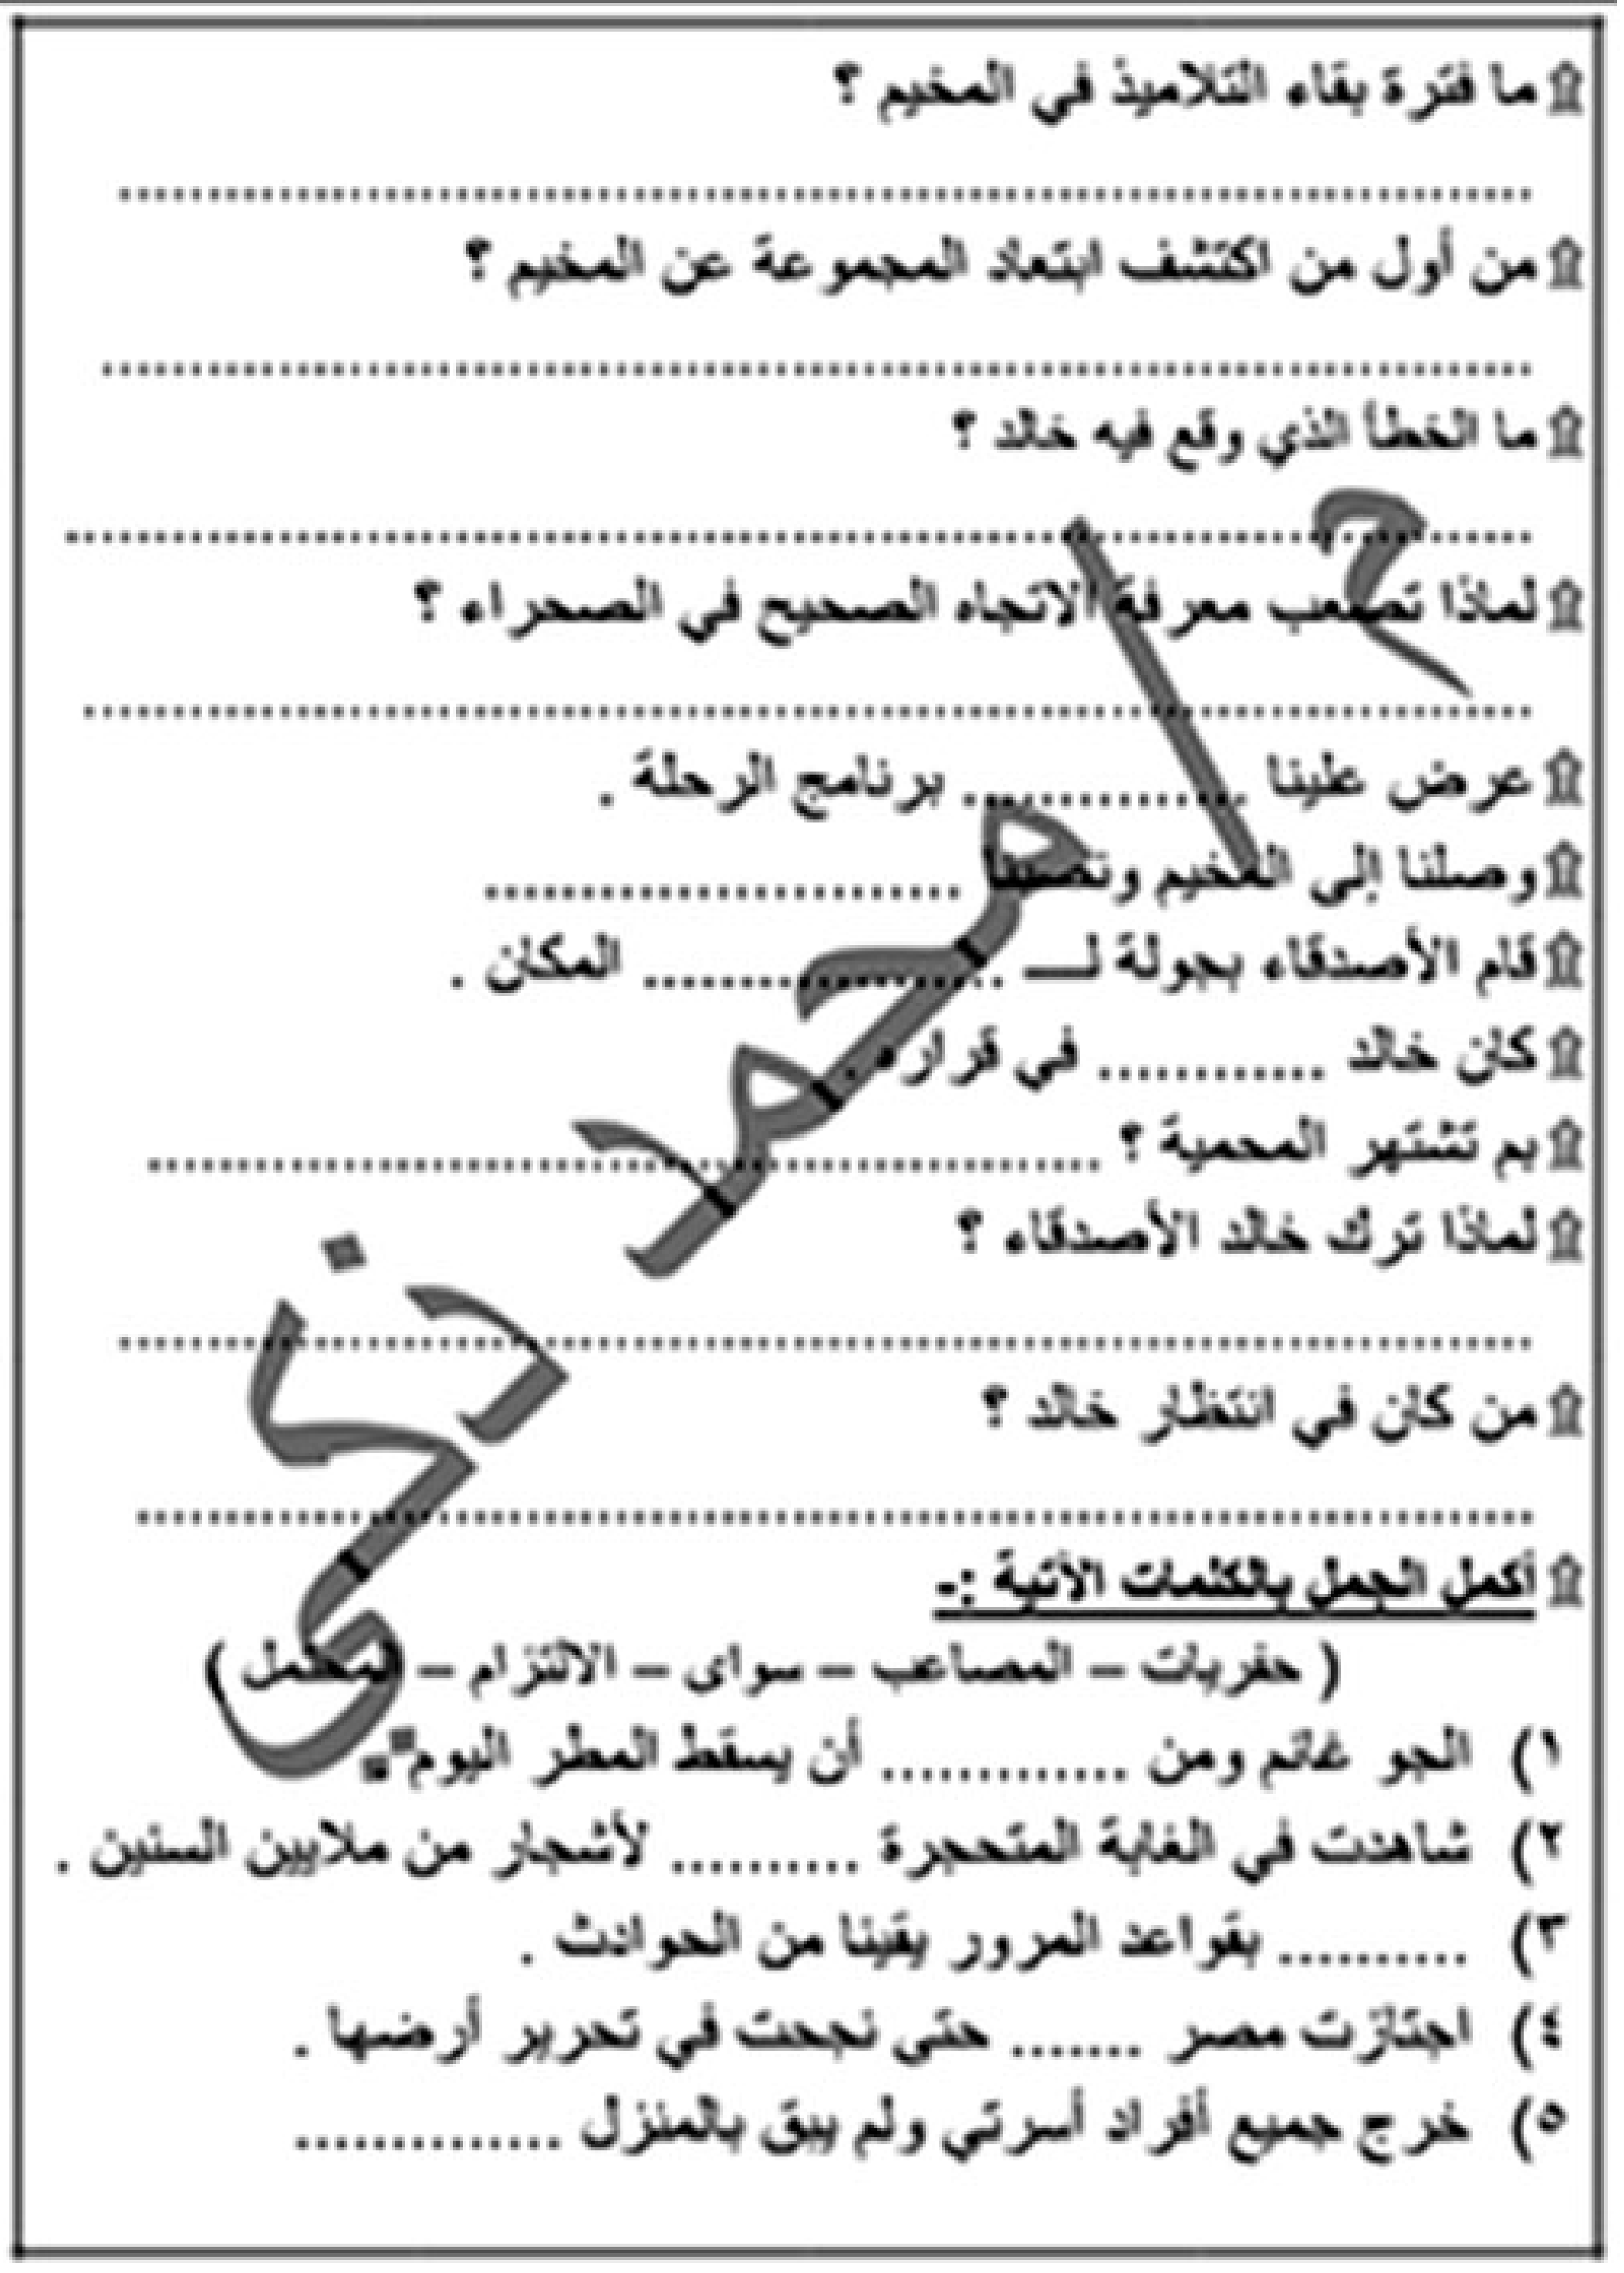 ما فترة بقاء التلاميذ في المخيم ؟
................................................................
من أول من اكتشف ابتعاد المجموعة عن المخيم ؟
................................................................
ما الخطأ الذي وقع فيه خالد ؟
................................................................
لماذا تصعب معرفة الاتجاه الصحيح في الصحراء ؟
................................................................
عرض علينا ............... برنامج الرحلة .
وصلنا إلى المخيم ونصبنا .........................
قام الأصدقاء بجولة لـــ ................... المكان .
كان خالد ............ في قراره .
بم تشتهر المحمية ؟ ..................................................
لماذا ترك خالد الأصدقاء ؟
................................................................
من كان في انتظار خالد ؟
................................................................
أكمل الجمل بالكلمات الآتية :-
( حفريات – المصاعب – سواى – الالتزام – المحتمل )
١) الجو غائم ومن ............. أن يسقط المطر اليوم .
٢) شاهدت في الغابة المتحجرة .......... لأشجار من ملايين السنين .
٣) .......... بقواعد المرور يقينا من الحوادث .
٤) اجتازت مصر ....... حتى نجحت في تحرير أرضها .
٥) خرج جميع أفراد أسرتي ولم يبق بالمنزل ..............